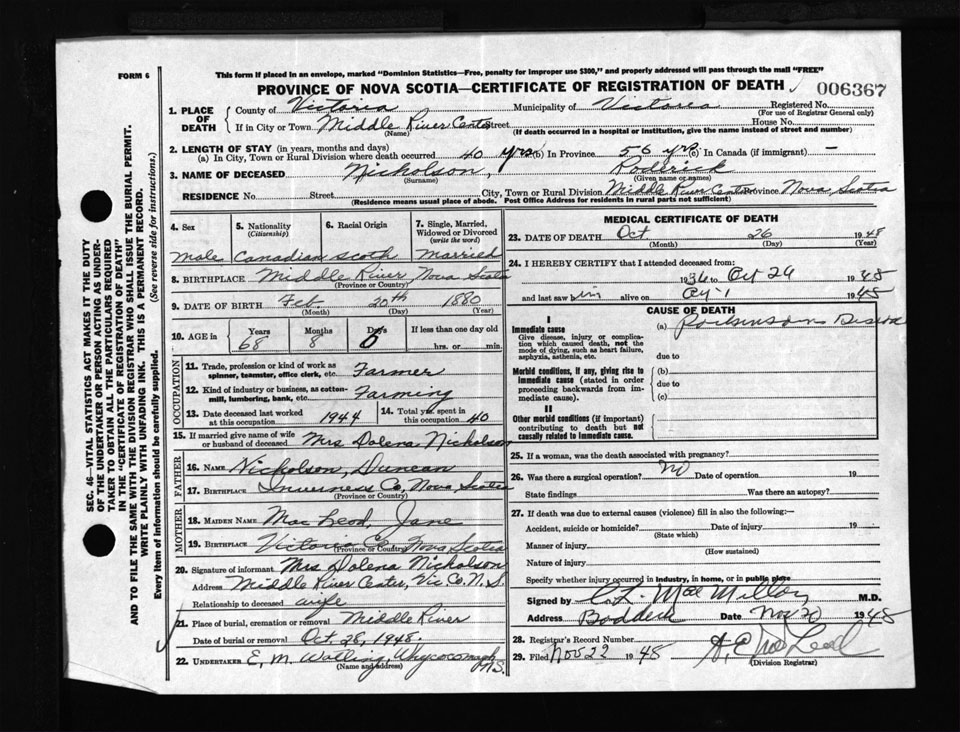 FORM 6
This form if placed in an envelope, marked "Dominion Statistics—Free, penalty for improper use $300," and properly addressed will pass through the mail "FREE"
PROVINCE OF NOVA SCOTIA—CERTIFICATE OF REGISTRATION OF DEATH 006367
1. PLACE OF DEATH County of Victoria Municipality of Victoria Registered No.
(For use of Registrar General only)
If in City or Town Middle River Center Street House No.
(Name) (If death occurred in a hospital or institution, give the name instead of street and number)
2. LENGTH OF STAY (in years, months and days)
(a) In City, Town or Rural Division where death occurred 40 yrs (b) In Province 56 yrs (c) In Canada (if immigrant) —
3. NAME OF DECEASED Nicholson, Roderick
(Surname) (Given name or names)
RESIDENCE No. Street City, Town or Rural Division Middle River Center Province Nova Scotia
(Residence means usual place of abode. Post Office Address for residents in rural parts not sufficient)
SEC. 46—VITAL STATISTICS ACT MAKES IT THE DUTY
OF THE UNDERTAKER OR PERSON ACTING AS UNDER-
TAKER TO OBTAIN ALL THE PARTICULARS REQUIRED
IN THE "CERTIFICATE OF REGISTRATION OF DEATH"
AND TO FILE THE SAME WITH THE DIVISION REGISTRAR WHO SHALL ISSUE THE BURIAL PERMIT.
WRITE PLAINLY WITH UNFADING INK. THIS IS A PERMANENT RECORD.
Every item of information should be carefully supplied. (See reverse side for instructions.)
4. Sex 5. Nationality (Citizenship) 6. Racial Origin 7. Single, Married, Widowed or Divorced (write the word)
Male Canadian Scotch Married
8. BIRTHPLACE Middle River, Nova Scotia
(Province or Country)
9. DATE OF BIRTH Feb. 20th 1880
(Month) (Day) (Year)
10. AGE in Years Months Days If less than one day old
68 8 hrs. or min.
OCCUPATION
11. Trade, profession or kind of work as spinner, teamster, office clerk, etc. Farmer
12. Kind of industry or business, as cotton-mill, lumbering, bank, etc. Farming
13. Date deceased last worked at this occupation 1944 14. Total yrs. spent in this occupation 40
15. If married give name of wife or husband of deceased Mrs Dolena Nicholson
FATHER
16. NAME Nicholson, Duncan
17. BIRTHPLACE Inverness Co, Nova Scotia
(Province or Country)
MOTHER
18. MAIDEN NAME Mac Leod, Jane
19. BIRTHPLACE Victoria Co Nova Scotia
(Province or Country)
20. Signature of informant Mrs Dolena Nicholson
Address Middle River Center, Vic Co, N.S.
Relationship to deceased wife
21. Place of burial, cremation or removal Middle River
Date of burial or removal Oct 28, 1948.
22. UNDERTAKER E. M. Watling, Whycocomagh N.S.
(Name and address)
MEDICAL CERTIFICATE OF DEATH
23. DATE OF DEATH Oct 26 1948
(Month) (Day) (Year)
24. I HEREBY CERTIFY that I attended deceased from:
1936 to Oct 26 1948
and last saw him alive on 1948
CAUSE OF DEATH
I
Immediate cause
Give disease, injury or complication which caused death, not the mode of dying, such as heart failure, asphyxia, asthenia, etc.
(a)
due to
Morbid conditions, if any, giving rise to immediate cause (stated in order proceeding backwards from immediate cause).
(b)
due to
(c)
II
Other morbid conditions (if important) contributing to death but not causally related to immediate cause.
25. If a woman, was the death associated with pregnancy?
26. Was there a surgical operation? No Date of operation 19
State findings Was there an autopsy?
27. If death was due to external causes (violence) fill in also the following:—
Accident, suicide or homicide? Date of injury 19
(State which)
Manner of injury
(How sustained)
Nature of injury
Specify whether injury occurred in industry, in home, or in public place
Signed by C L MacMillan M.D.
Address Baddeck Date Nov 20 1948
28. Registrar's Record Number
29. Filed Nov 22 1948
(Division Registrar)